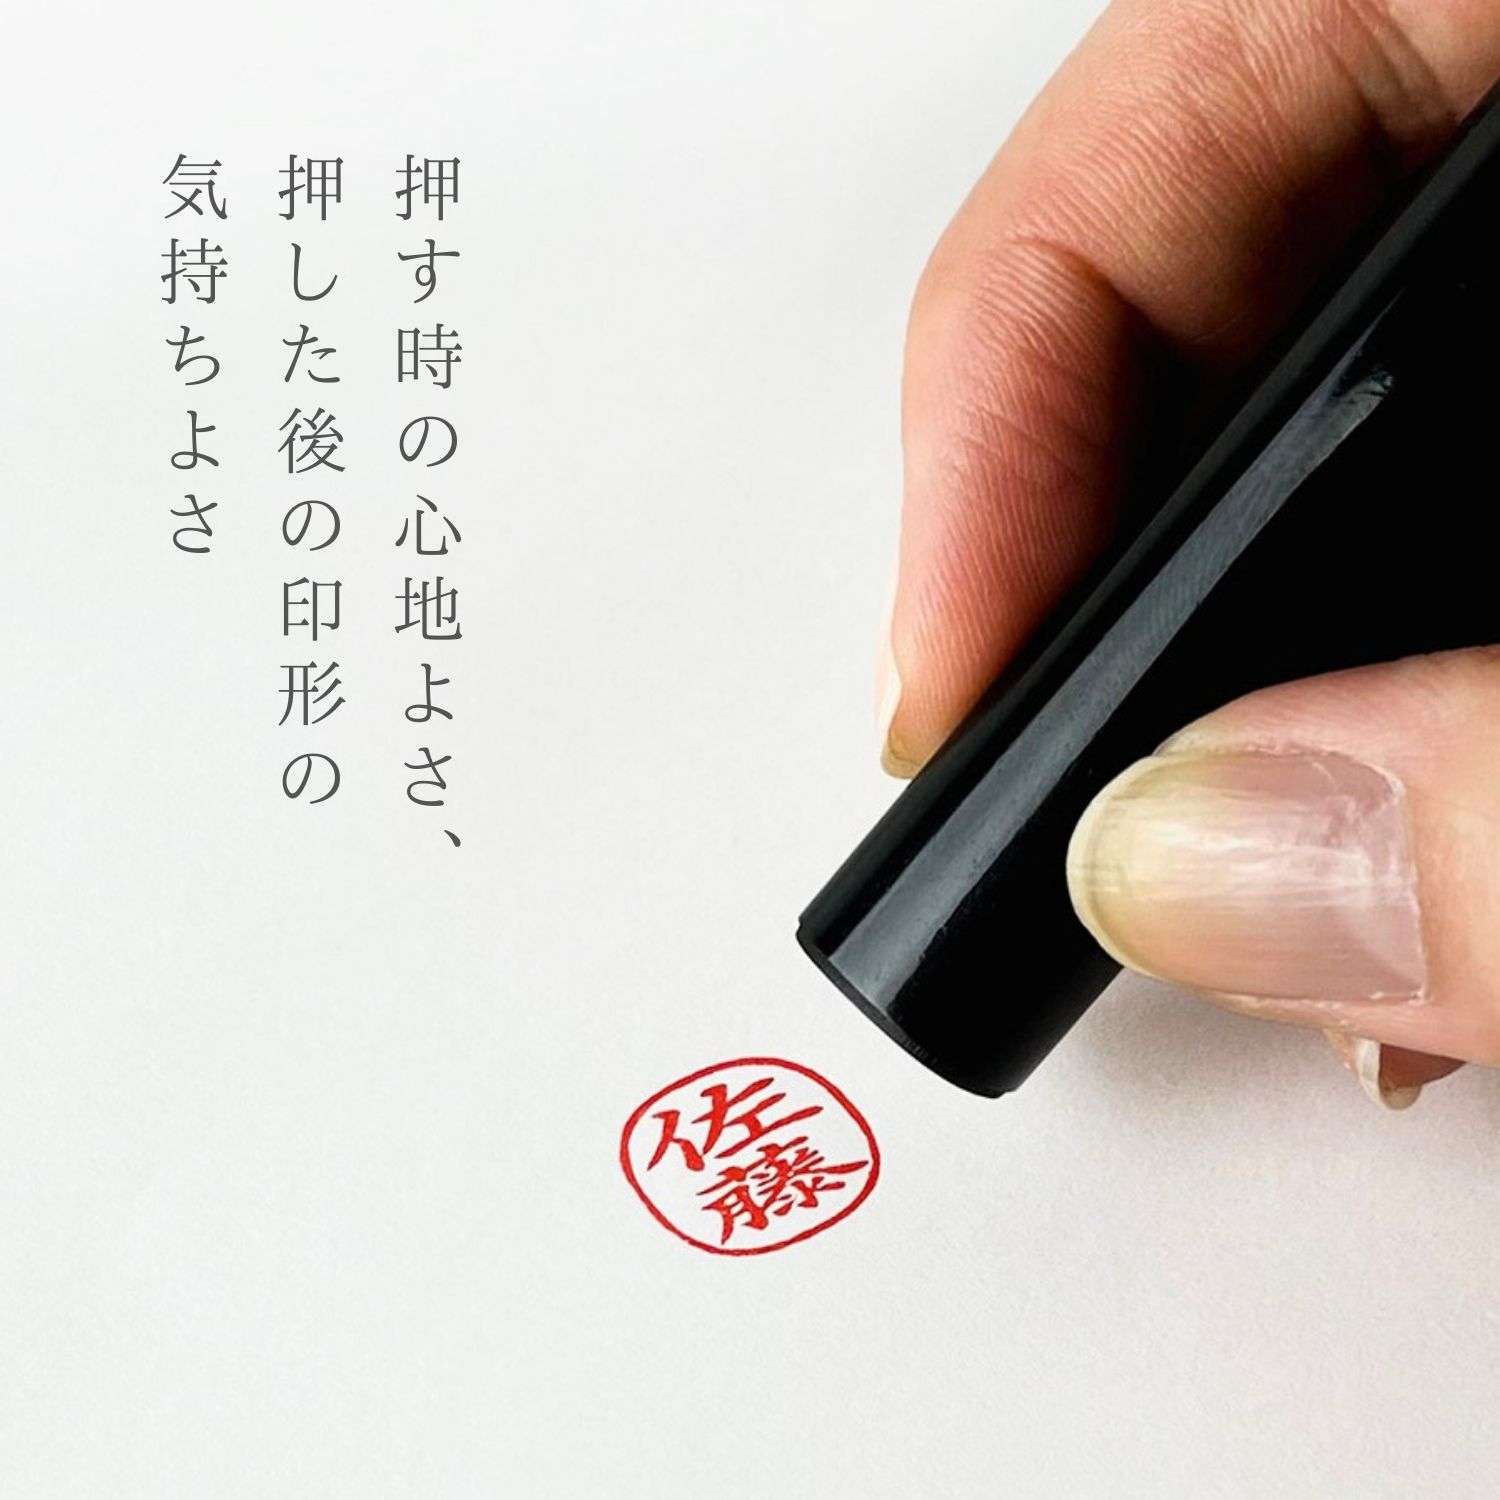 押す時の心地よさ、
押した後の印形の
気持ちよさ
佐藤